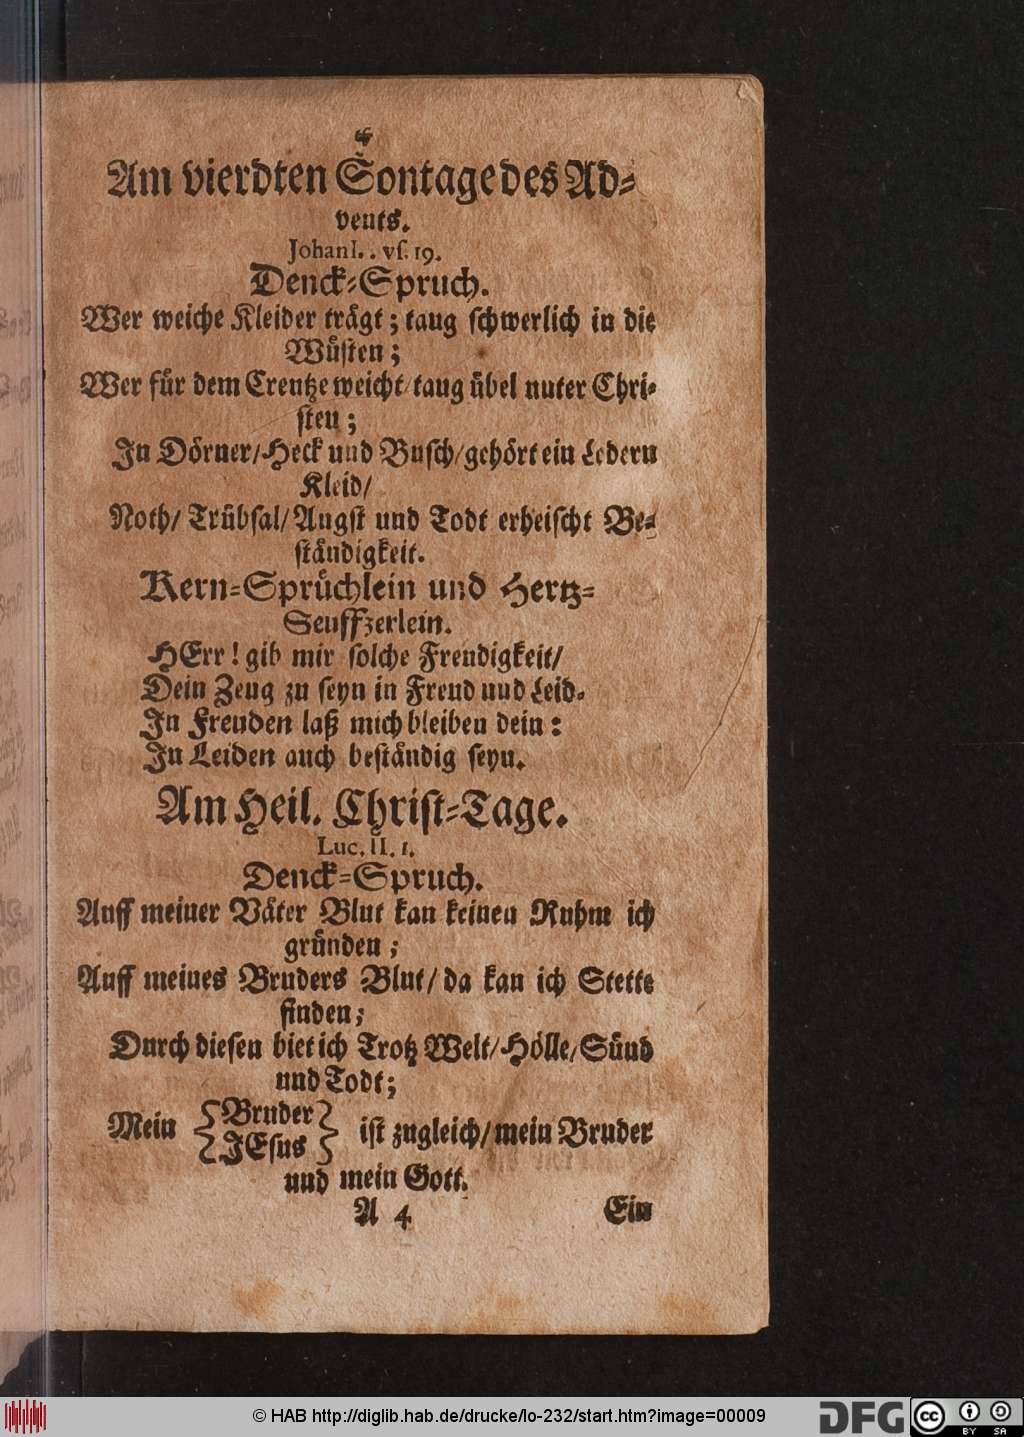 Am vierdten Sontage des Ad-
vents.
Johan I. . vs. 19.
Denck-Spruch.
Wer weiche Kleider trägt; taug schwerlich in die
Wüsten;
Wer für dem Creutze weicht/ taug übel unter Chri-
sten;
In Dörner/Heck und Busch/gehört ein Ledern
Kleid/
Noth/ Trübsal/ Angst und Todt erheischt Be-
ständigkeit.
Kern-Sprüchlein und Hertz-
Seuffzerlein.
HErr! gib mir solche Freudigkeit/
Dein Zeug zu seyn in Freud und Leid.
In Freuden laß mich bleiben dein:
In Leiden auch beständig seyn.
Am Heil. Christ-Tage.
Luc. II. 1.
Denck-Spruch.
Auff meiner Väter Blut kan keinen Ruhm ich
gründen;
Auff meines Bruders Blut/ da kan ich Stette
finden;
Durch diesen biet ich Trotz Welt/Hölle/Sünd
und Todt;
Mein { Bruder } ist zugleich/mein Bruder
{ JEsus }
und mein Gott.
A 4 Ein
© HAB http://diglib.hab.de/drucke/lo-232/start.htm?image=00009
DFG
cc BY SA